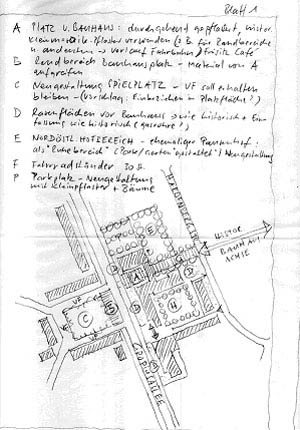 Blatt 1
A PLATZ V. BAUHAUS: durchgehend gepflastert, histor.
Kleinmosaik-Pflaster verwenden (z.B. für Randbereiche
u. andersrum → Vorlauf Fahrbahn)
B Randbereich Bauhausplatz - Material von A
aufgreifen
C Neugestaltung SPIELPLATZ - VF soll erhalten
bleiben - (Vorschlag: Einbeziehen in Platzfläche?)
D Rasenflächen vor Bauhaus → wie historisch + Ein-
fassung wie historisch
E NORDÖSTL. HOFBEREICH - ehemaliger
als "Ruhebereich" Neugestaltung
F Fahrradständer
P Parkplatz - Neugestaltung
mit Kleinpflaster + Bäume
HISTOR.
BAUHAUS
ACHSE
E
A
D
B
C
VF
H
GROPIUSALLEE